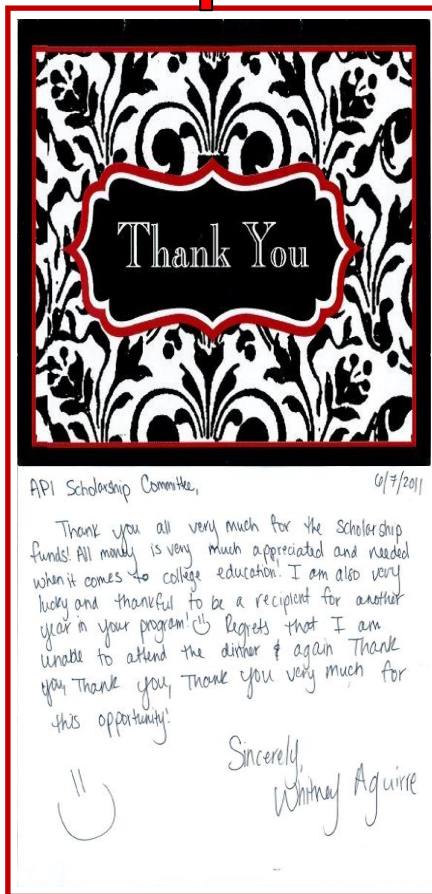 Thank You
API Scholarship Committee, 6/7/2011
Thank you all very much for the scholarship
funds! All money is very much appreciated and needed
when it comes to college education! I am also very
lucky and thankful to be a recipient for another
year in your program! Regrets that I am
unable to attend the dinner & again Thank
you, Thank you, Thank you very much for
this opportunity!
Sincerely,
Whitney Aguirre